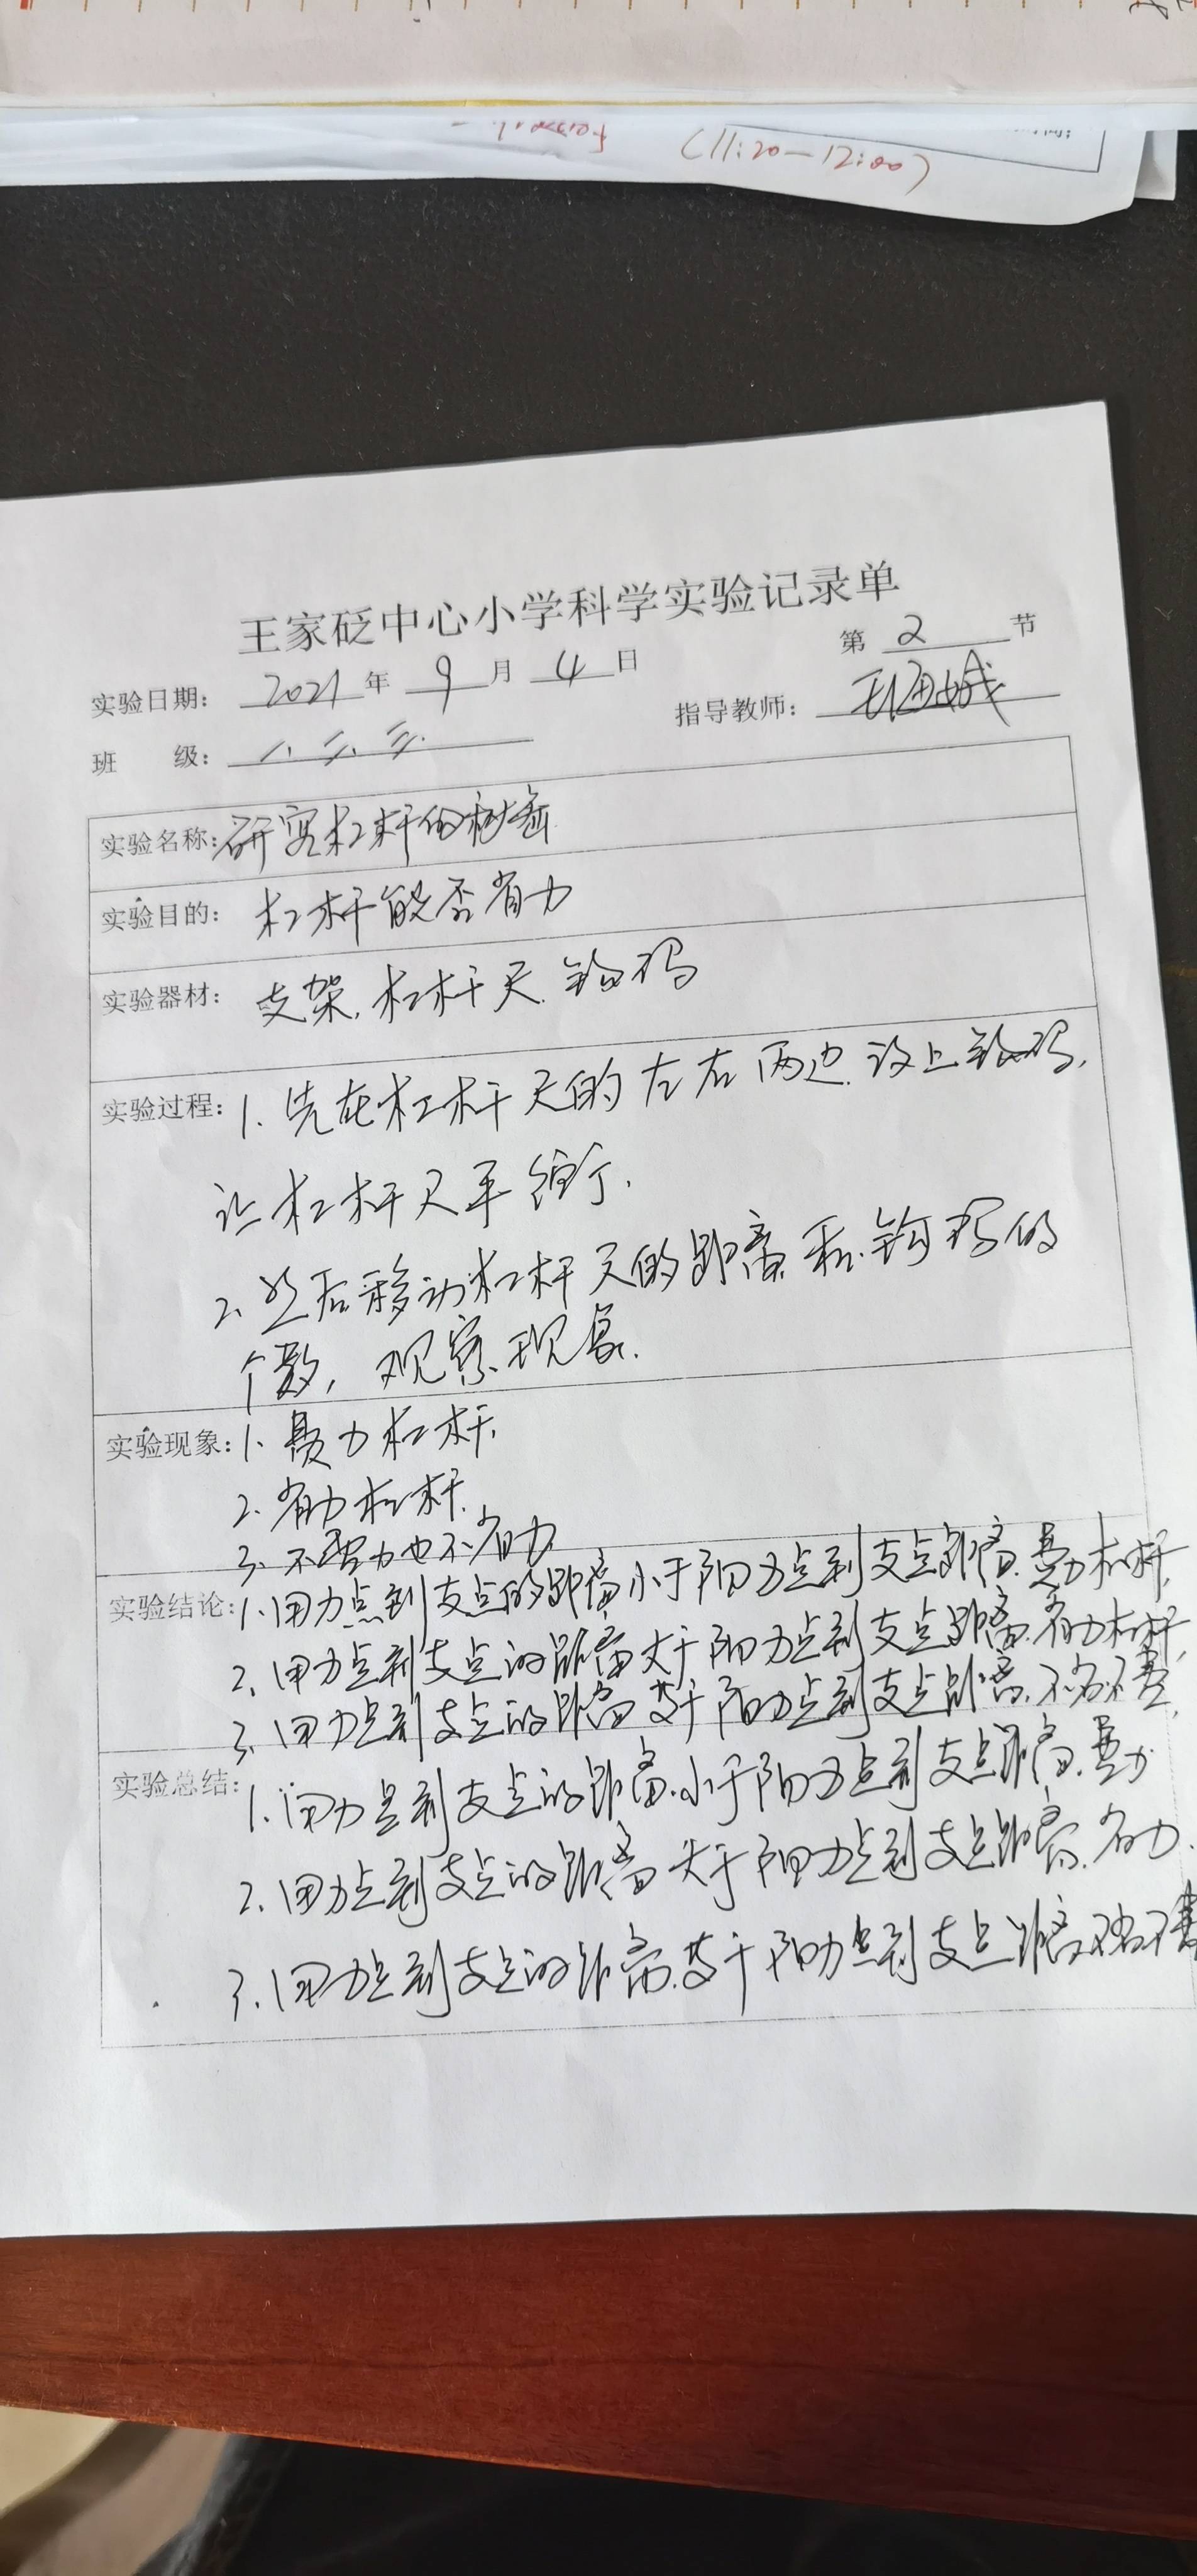 (11:20—12:00)
王家砭中心小学科学实验记录单
第 2 节
实验日期: 2021 年 9 月 4 日
指导教师:
班 级: 一、二、三.
实验名称: 研究杠杆的秘密
实验目的: 杠杆能否省力
实验器材: 支架, 杠杆尺、钩码
实验过程: 1、先在杠杆尺的左右两边 上钩码,
让杠杆尺平衡.
2、然后移动杠杆尺的距离和钩码的
个数, 观察现象.
实验现象: 1、费力杠杆.
2、省力杠杆.
3、不费力也不省力
实验结论: 1、用力点到支点的距离小于阻力点到支点距离.费力杠杆,
2、用力点到支点的距离大于阻力点到支点距离.省力杠杆,
3、用力点到支点的距离等于阻力点到支点距离、不省不费,
实验总结: 1、用力点到支点的距离.小于阻力点到支点距离.费力
2、用力点到支点的距离大于阻力点到支点距离、省力.
3、用力点到支点的距离.等于阻力点到支点距离不省不费